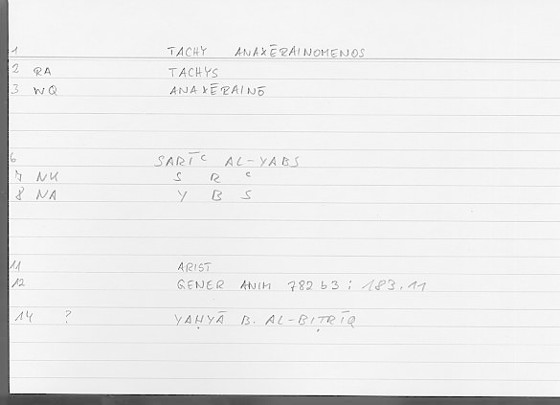 1 TACHY ANAXĒRAINOMENOS
2 RA TACHYS
3 WQ ANAXĒRAINŌ
6 SARĪᶜ AL-YABS
7 NK S R ᶜ
8 NA Y B S
11 ARIST
12 GENER ANIM 782 b3 ; 183.11
14 ? YAḤYĀ B. AL-BIṬRĪQ